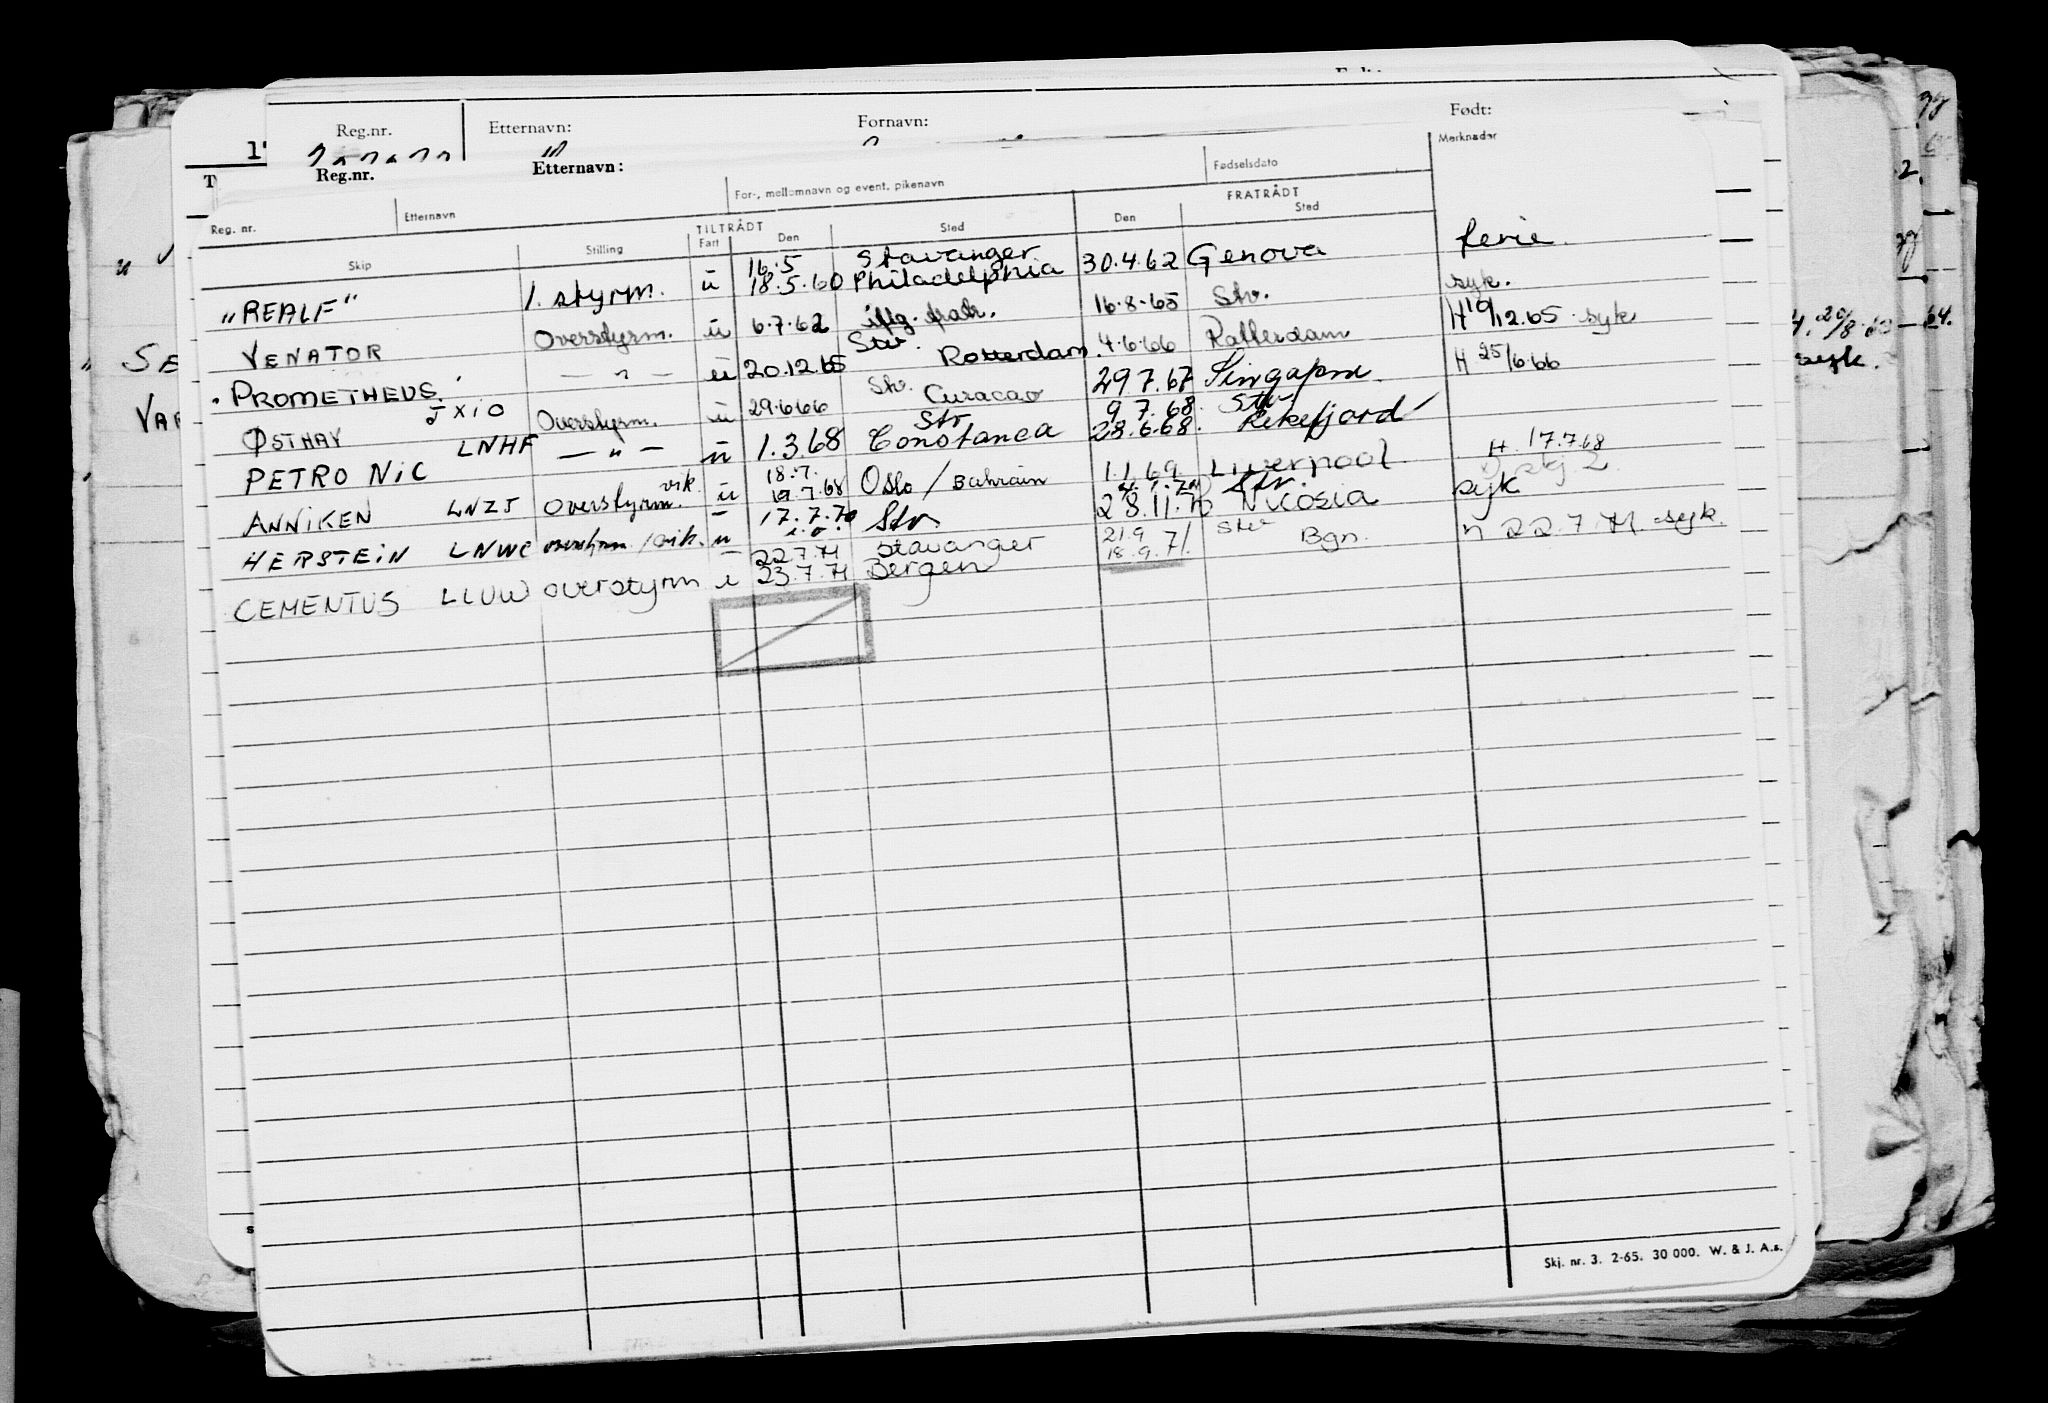 Reg.nr. Etternavn: Fornavn: Født:
Reg.nr. Etternavn: Merknader
Reg. nr. Etternavn For-, mellomnavn og event. pikenavn Fødselsdato
TILTRÅDT FRATRÅDT
Skip Stilling Fart Den Sted Den Sted
16.5 Stavanger
"REALF" 1. styrm. u 18.5.60 Philadelphia 30.4.62 Genova ferie.
VENATOR Overstyrm. u 6.7.62 iflg. fratr. 16.8.65 Stv. syk.
PROMETHEUS. — " — u 20.12.65 Stv. Rotterdam. 4.6.66 Rotterdam H 19/12.65 syk
ØSTHAV JXIO Overstyrm. u 29.6.66 Stv. Curacao 29.7.67 Singapore H 25/6.66
Stv 9.7.68. Stv
PETRO NIC LNHF — " — u 1.3.68 Constanca 28.6.68. Rekefjord
18.7. H. 17.7.68
ANNIKEN LNZJ Overstyrm. vik. u 19.7.68 Oslo / Bahrain 1.1.69 Liverpool
17.7.70 Stv. Stv.
HERSTEIN LNWC overstyrm. /vik. u 28.11.70 Nicosia syk
22.7.71 Stavanger 21.9 Stv
CEMENTUS LLUW overstyrm u 23.7.71 Bergen 18.9.71. Bgn. H 22.7.71. syk.
SE
VAR
syk.
Skj. nr. 3. 2-65. 30 000. W. & J. A.s.